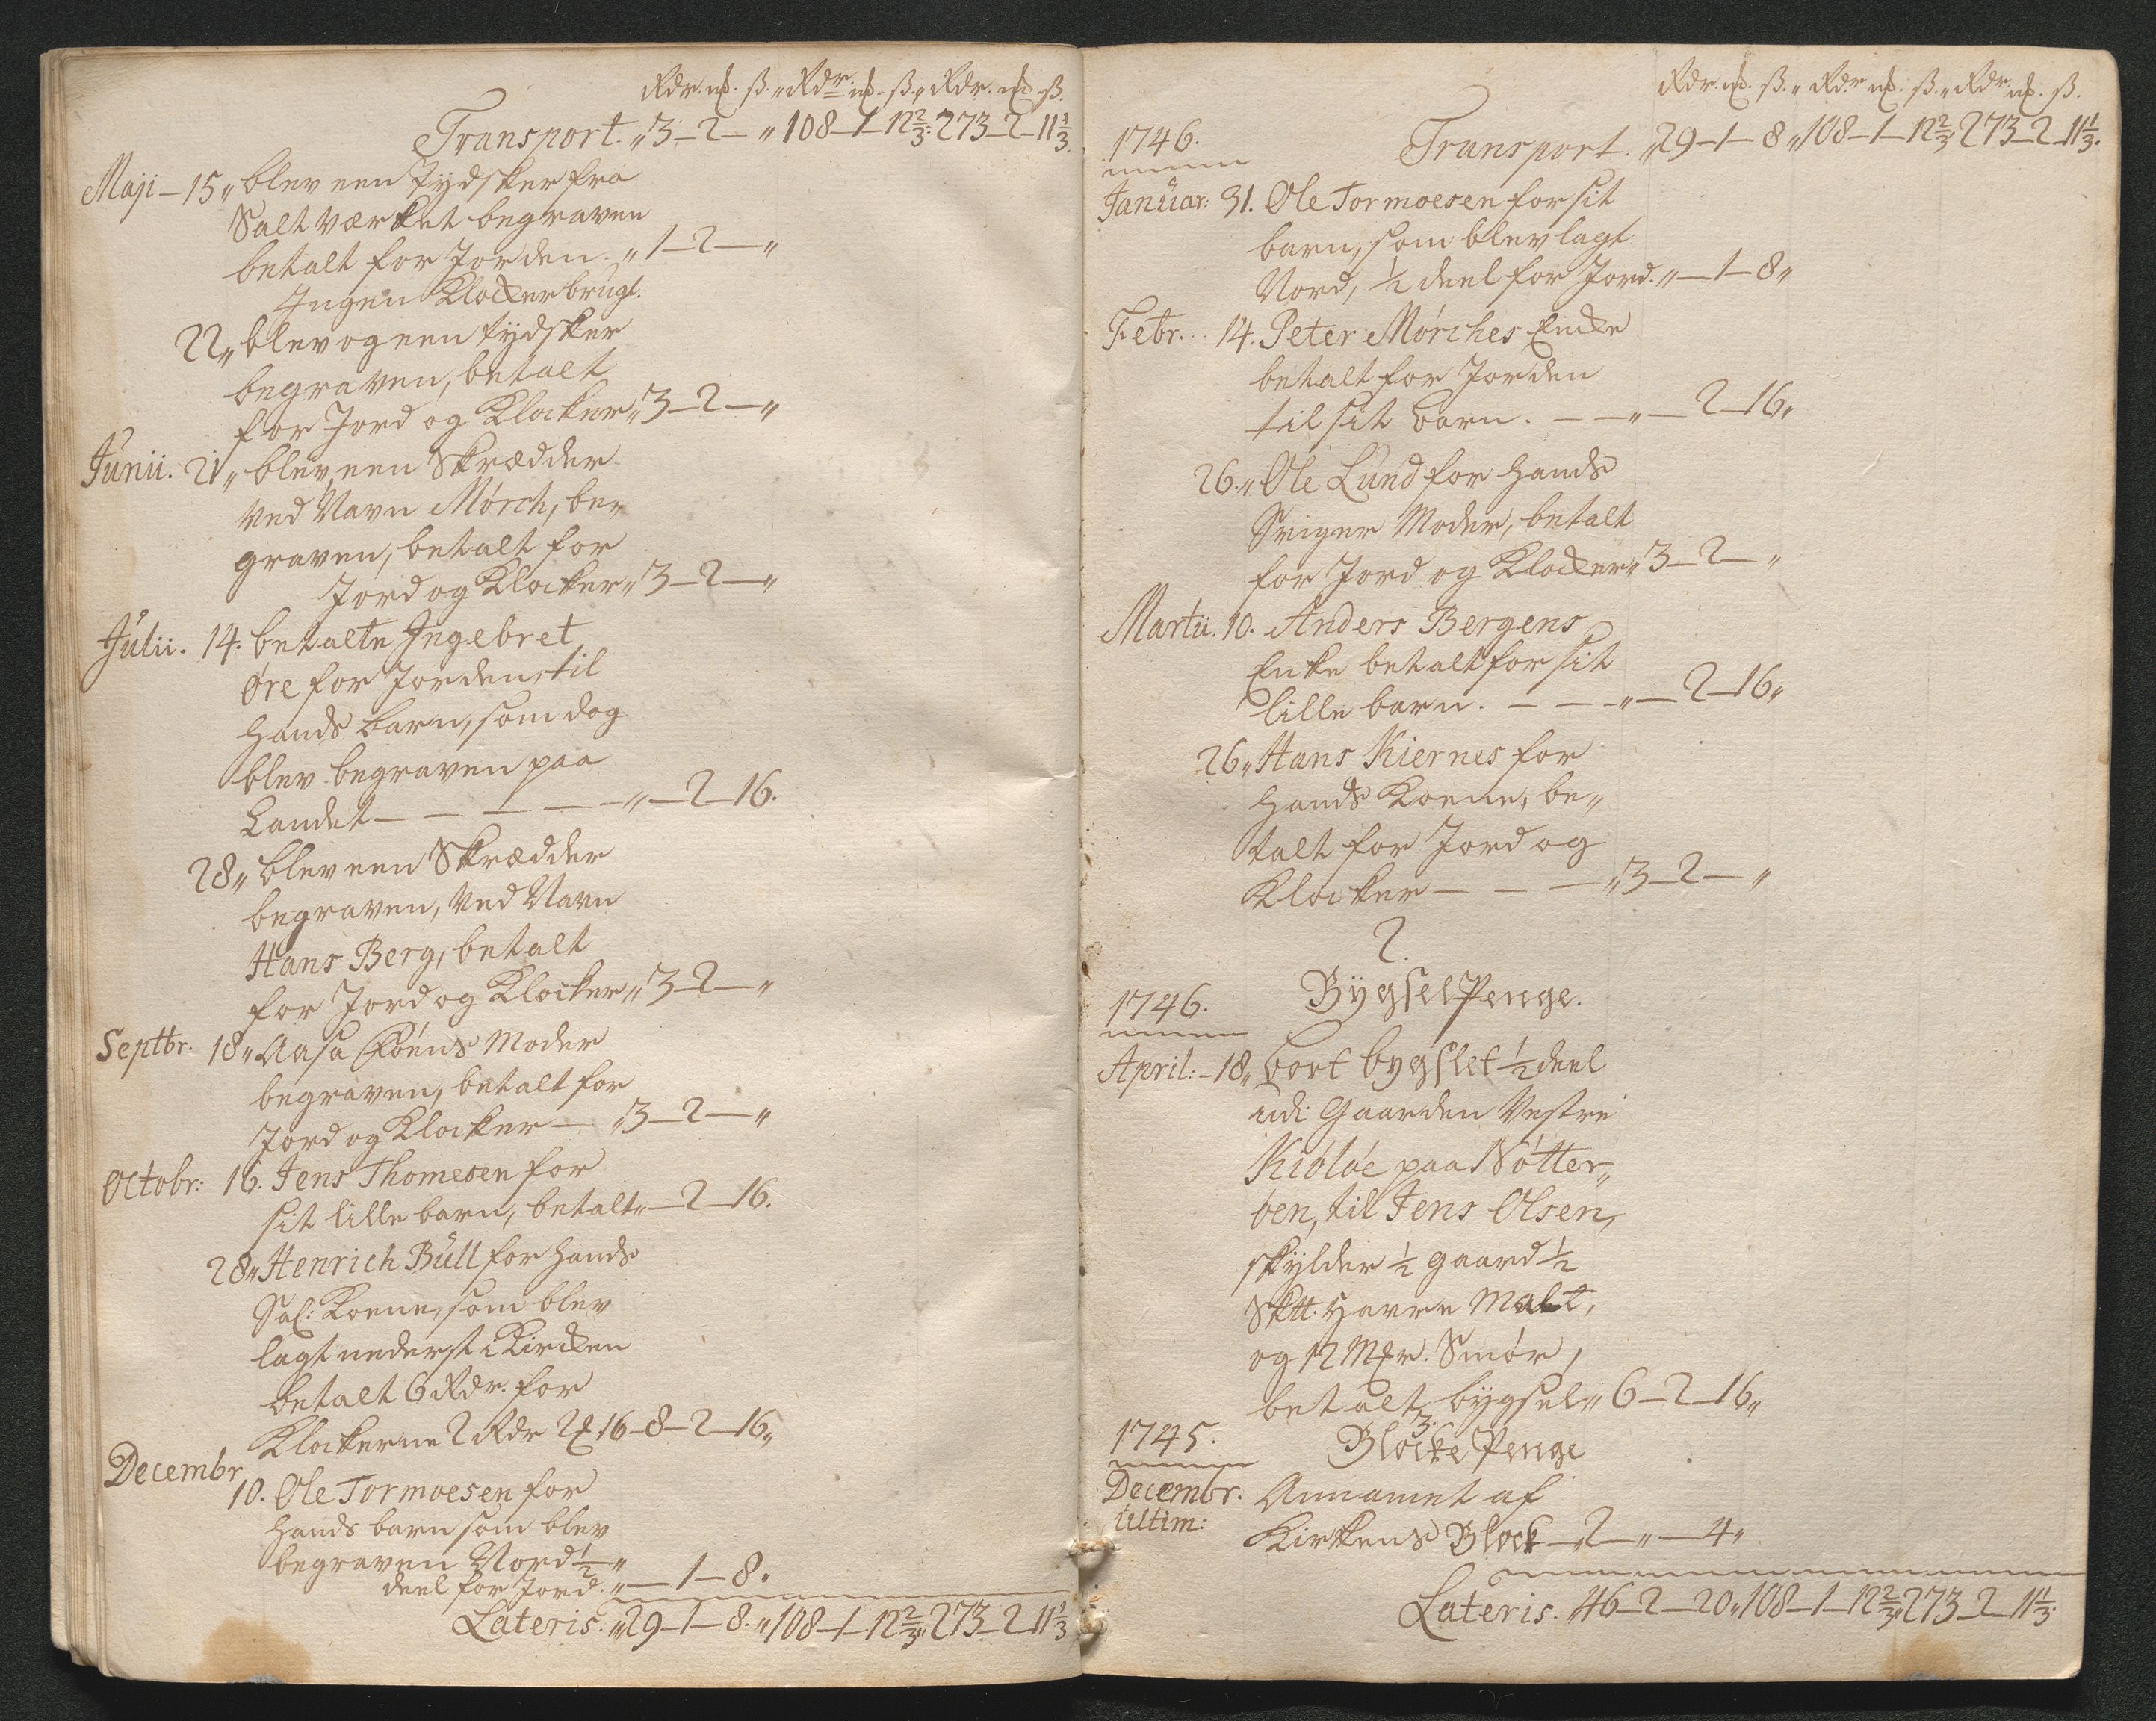 Rdr. mk. ß. „ Rdr. mk. ß. „ Rdr. mk. ß.
Transport. „ 3–2– „ 108–1–12⅔. 273–2–11⅓.
Maji – 15 „ blev een Tydsker fra
Saltværket begraven
betalt for Jorden. „ 1–2– „
Ingen Klocker brugt.
22 „ blev og een tydsker
begraven, betalt
for Jord og Klocker „ 3–2– „
Junii. 21 „ blev een Skrædder
ved Navn Mörch, be„
graven, betalt for
Jord og Klocker „ 3–2– „
Julii. 14. betalte Ingebret
Øre for Jorden, til
hands barn, som dog
blev begraven paa
Landet – – – – „ – 2–16.
28 „ blev een Skrædder
begraven, ved Navn
Hans Berg, betalt
for Jord og Klocker „ 3–2– „
Septbr. 18 „ Aasa Moder
begraven, betalt for
Jord og Klocker – „ 3–2– „
Octobr: 16. Jens Thomesen for
sit lille barn, betalt „ – 2–16.
28 „ Henrich Bull for hands
Sal: Koene, som blev
lagt nederst i Kircken
betalt 6 Rdr. for
Klockerne 2 Rdr 2 mk 16 – 8–2–16 „
Decembr
10. Ole Tormoesen for
hands barn som blev
begraven Nord ½ „
deel for Jord. „ – 1–8 „
Lateris. „ 29–1–8. „ 108–1–12⅔ „ 273–2–11⅓
Rdr. mk. ß. „ Rdr mk. ß. „ Rdr mk. ß.
1746. Transport. „ 29–1–8 „ 108–1–12⅔ „ 273–2–11⅓.
Januar: 31. Ole Tormoesen for sit
barn, som blev lagt
Nord, ½ deel for Jord. „ – 1–8 „
Febr. 14. Peter Mörches Encke
betalt for Jorden
til sit barn. – – „ – 2–16 „
26. „ Ole Lund for hands
Sviger Moder, betalt
for Jord og Klocker „ 3–2– „
Martii. 10. Anders Bergens
Enke betalt for sit
lille barn. – – – „ – 2–16 „
26 „ Hans Kiernes for
hands Koene, be„
talt for Jord og
Klocker – – – „ 3–2– „
2.
Bygsel Penge.
1746.
April: – 18 „ bort bygslet ½ deel
udi Gaarden Vestre
Kiölöe paa Nötter„
öen, til Jens Olsen,
skylder ½ gaard ½
Sktt. Havre Malt,
og 12 Mkr. Smör,
betalt bygsel „ 6–2–16 „
3.
1745. Blocke Penge
Decembr. Annamet af
Ultim: Kirkens Block – „ 2 – „ – 4 „
Lateris. 46–2–20 „ 108–1–12⅔ „ 273–2–11⅓.